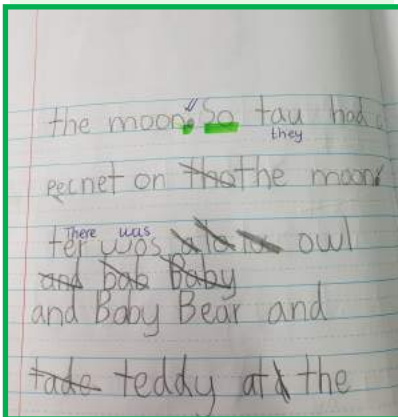 the moon. So tau had a
they
pecnet on the moon.
There was
ter wos owl
and bab Baby
and Baby Bear and
teddy at the